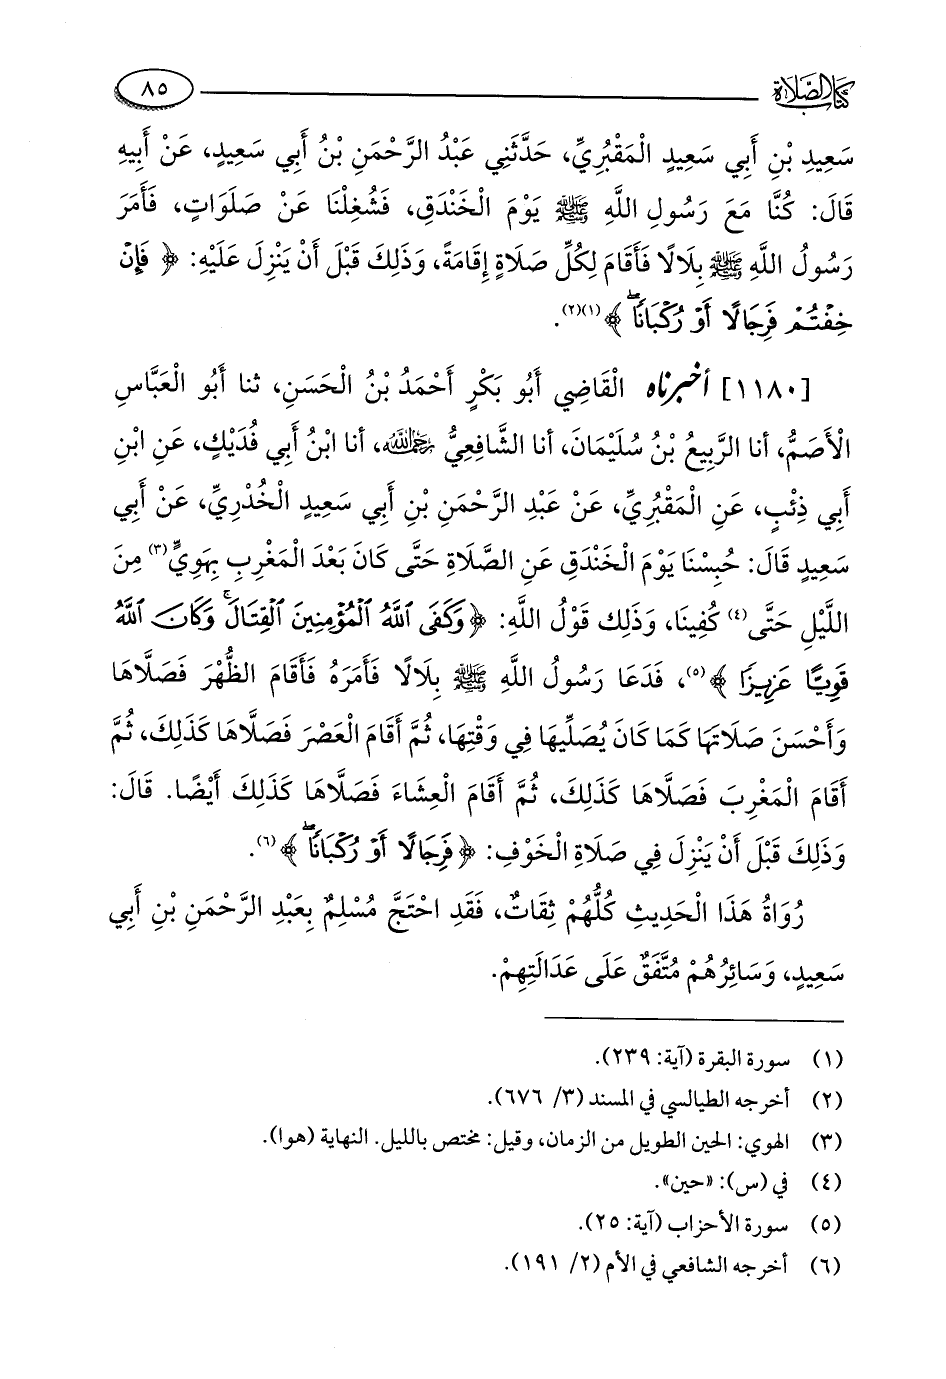 كتاب الصلاة ٨٥
سَعِيدِ بْنِ أَبِي سَعِيدٍ الْمَقْبُرِيِّ، حَدَّثَنِي عَبْدُ الرَّحْمَنِ بْنُ أَبِي سَعِيدٍ، عَنْ أَبِيهِ
قَالَ: كُنَّا مَعَ رَسُولِ اللَّهِ ﷺ يَوْمَ الْخَنْدَقِ، فَشُغِلْنَا عَنْ صَلَوَاتٍ، فَأَمَرَ
رَسُولُ اللَّهِ ﷺ بِلَالًا فَأَقَامَ لِكُلِّ صَلَاةٍ إِقَامَةً، وَذَلِكَ قَبْلَ أَنْ يَنْزِلَ عَلَيْهِ: ﴿فَإِنْ
خِفْتُمْ فَرِجَالًا أَوْ رُكْبَانًا ۖ﴾(١)(٢).
[١١٨٠] أخبرناه الْقَاضِي أَبُو بَكْرٍ أَحْمَدُ بْنُ الْحَسَنِ، ثنا أَبُو الْعَبَّاسِ
الْأَصَمُّ، أنا الرَّبِيعُ بْنُ سُلَيْمَانَ، أنا الشَّافِعِيُّ رحمه الله، أنا ابْنُ أَبِي فُدَيْكٍ، عَنِ ابْنِ
أَبِي ذِئْبٍ، عَنِ الْمَقْبُرِيِّ، عَنْ عَبْدِ الرَّحْمَنِ بْنِ أَبِي سَعِيدٍ الْخُدْرِيِّ، عَنْ أَبِي
سَعِيدٍ قَالَ: حُبِسْنَا يَوْمَ الْخَنْدَقِ عَنِ الصَّلَاةِ حَتَّى كَانَ بَعْدَ الْمَغْرِبِ بِهَوِيٍّ(٣) مِنَ
اللَّيْلِ حَتَّى(٤) كُفِينَا، وَذَلِكَ قَوْلُ اللَّهِ: ﴿وَكَفَى اللَّهُ الْمُؤْمِنِينَ الْقِتَالَ ۚ وَكَانَ اللَّهُ
قَوِيًّا عَزِيزًا﴾(٥)، فَدَعَا رَسُولُ اللَّهِ ﷺ بِلَالًا فَأَمَرَهُ فَأَقَامَ الظُّهْرَ فَصَلَّاهَا
وَأَحْسَنَ صَلَاتَهَا كَمَا كَانَ يُصَلِّيهَا فِي وَقْتِهَا، ثُمَّ أَقَامَ الْعَصْرَ فَصَلَّاهَا كَذَلِكَ، ثُمَّ
أَقَامَ الْمَغْرِبَ فَصَلَّاهَا كَذَلِكَ، ثُمَّ أَقَامَ الْعِشَاءَ فَصَلَّاهَا كَذَلِكَ أَيْضًا. قَالَ:
وَذَلِكَ قَبْلَ أَنْ يَنْزِلَ فِي صَلَاةِ الْخَوْفِ: ﴿فَرِجَالًا أَوْ رُكْبَانًا ۖ﴾(٦).
رُوَاةُ هَذَا الْحَدِيثِ كُلُّهُمْ ثِقَاتٌ، فَقَدِ احْتَجَّ مُسْلِمٌ بِعَبْدِ الرَّحْمَنِ بْنِ أَبِي
سَعِيدٍ، وَسَائِرُهُمْ مُتَّفَقٌ عَلَى عَدَالَتِهِمْ.
(١) سورة البقرة (آية: ٢٣٩).
(٢) أخرجه الطيالسي في المسند (٣/ ٦٧٦).
(٣) الهوي: الحين الطويل من الزمان، وقيل: مختص بالليل. النهاية (هوا).
(٤) في (س): «حين».
(٥) سورة الأحزاب (آية: ٢٥).
(٦) أخرجه الشافعي في الأم (٢/ ١٩١).